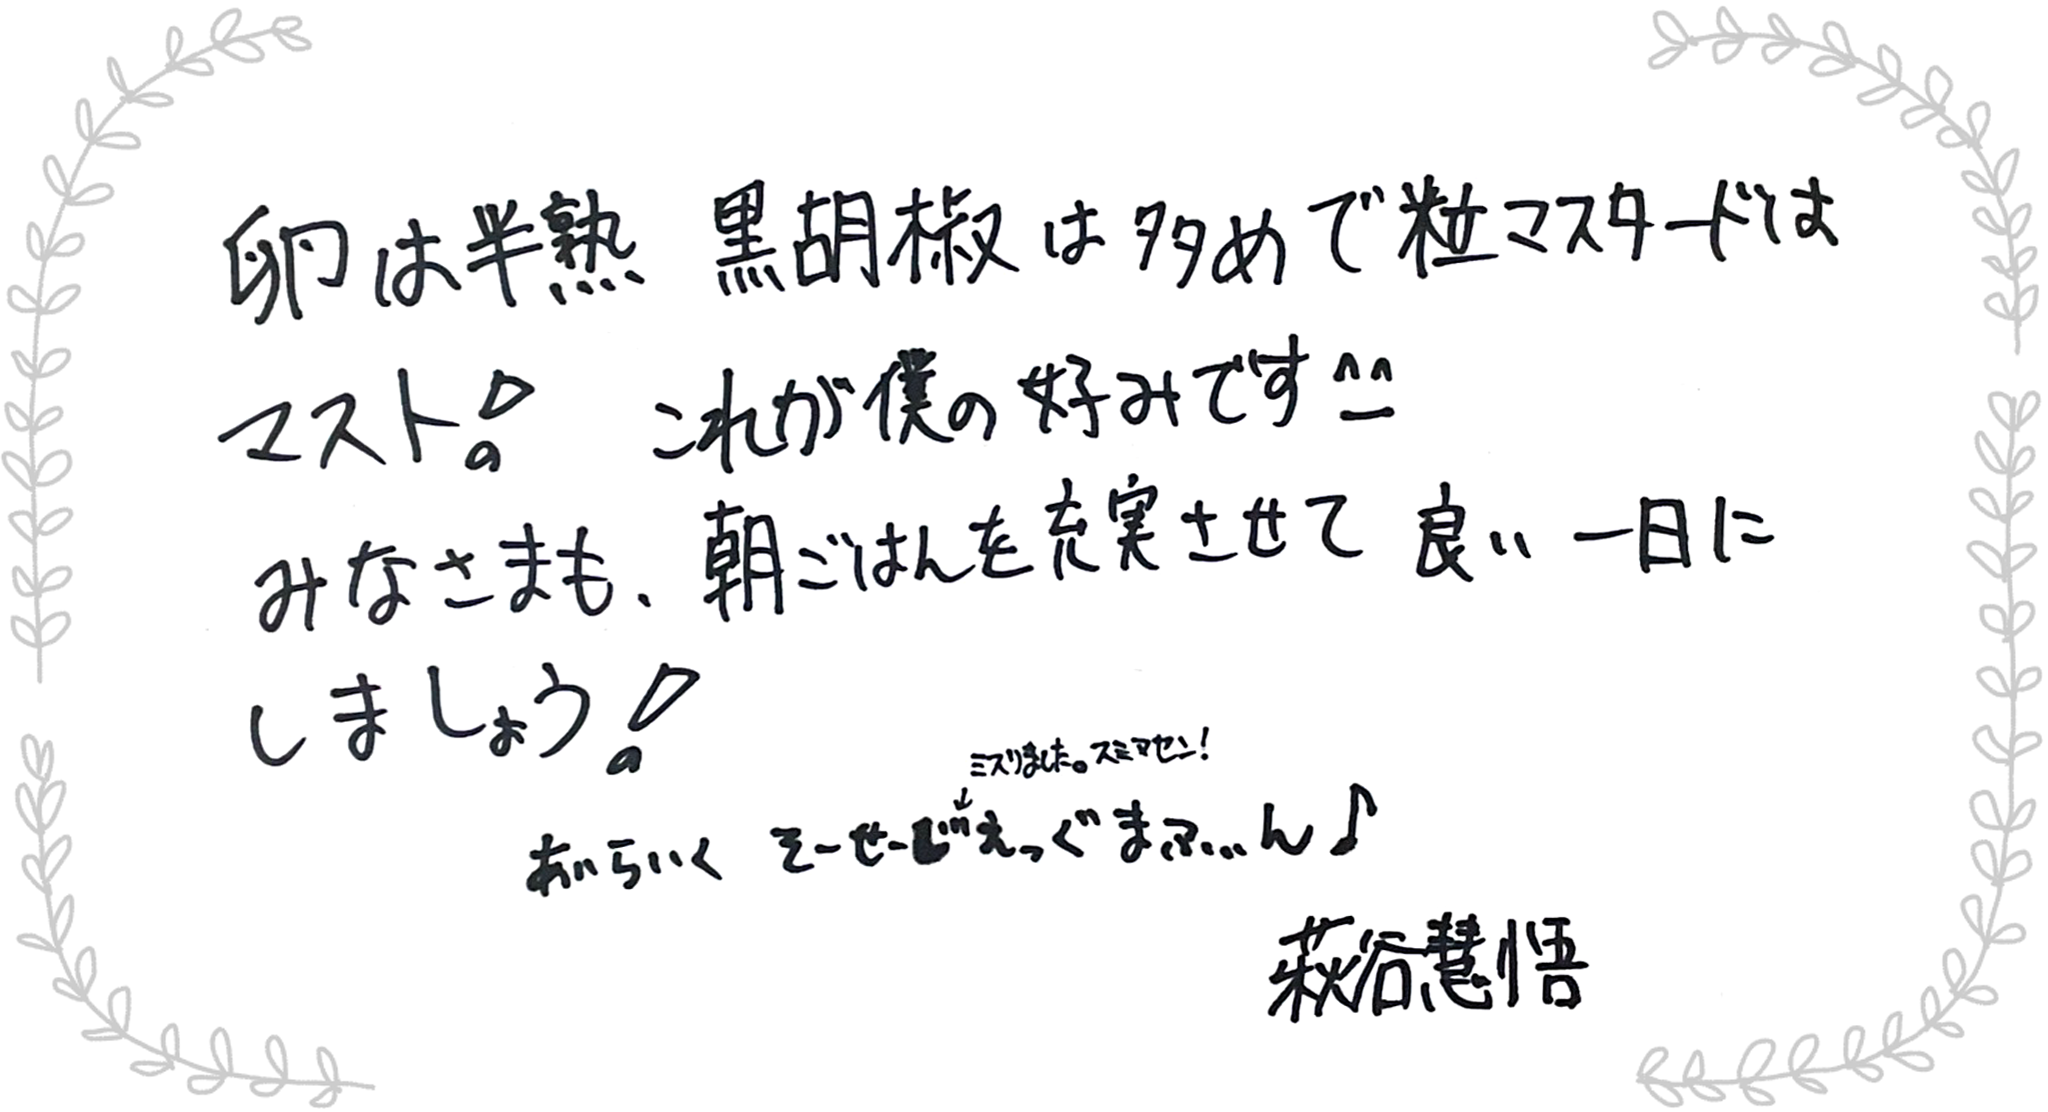 卵は半熟 黒胡椒は多めで粒マスタードは
マスト! これが僕の好みです^^
みなさまも、朝ごはんを充実させて良い一日に
しましょう!
ミスりました。スミマセン!
↓
あいらいく そーせーじえっぐまふぃん♪
萩谷慧悟